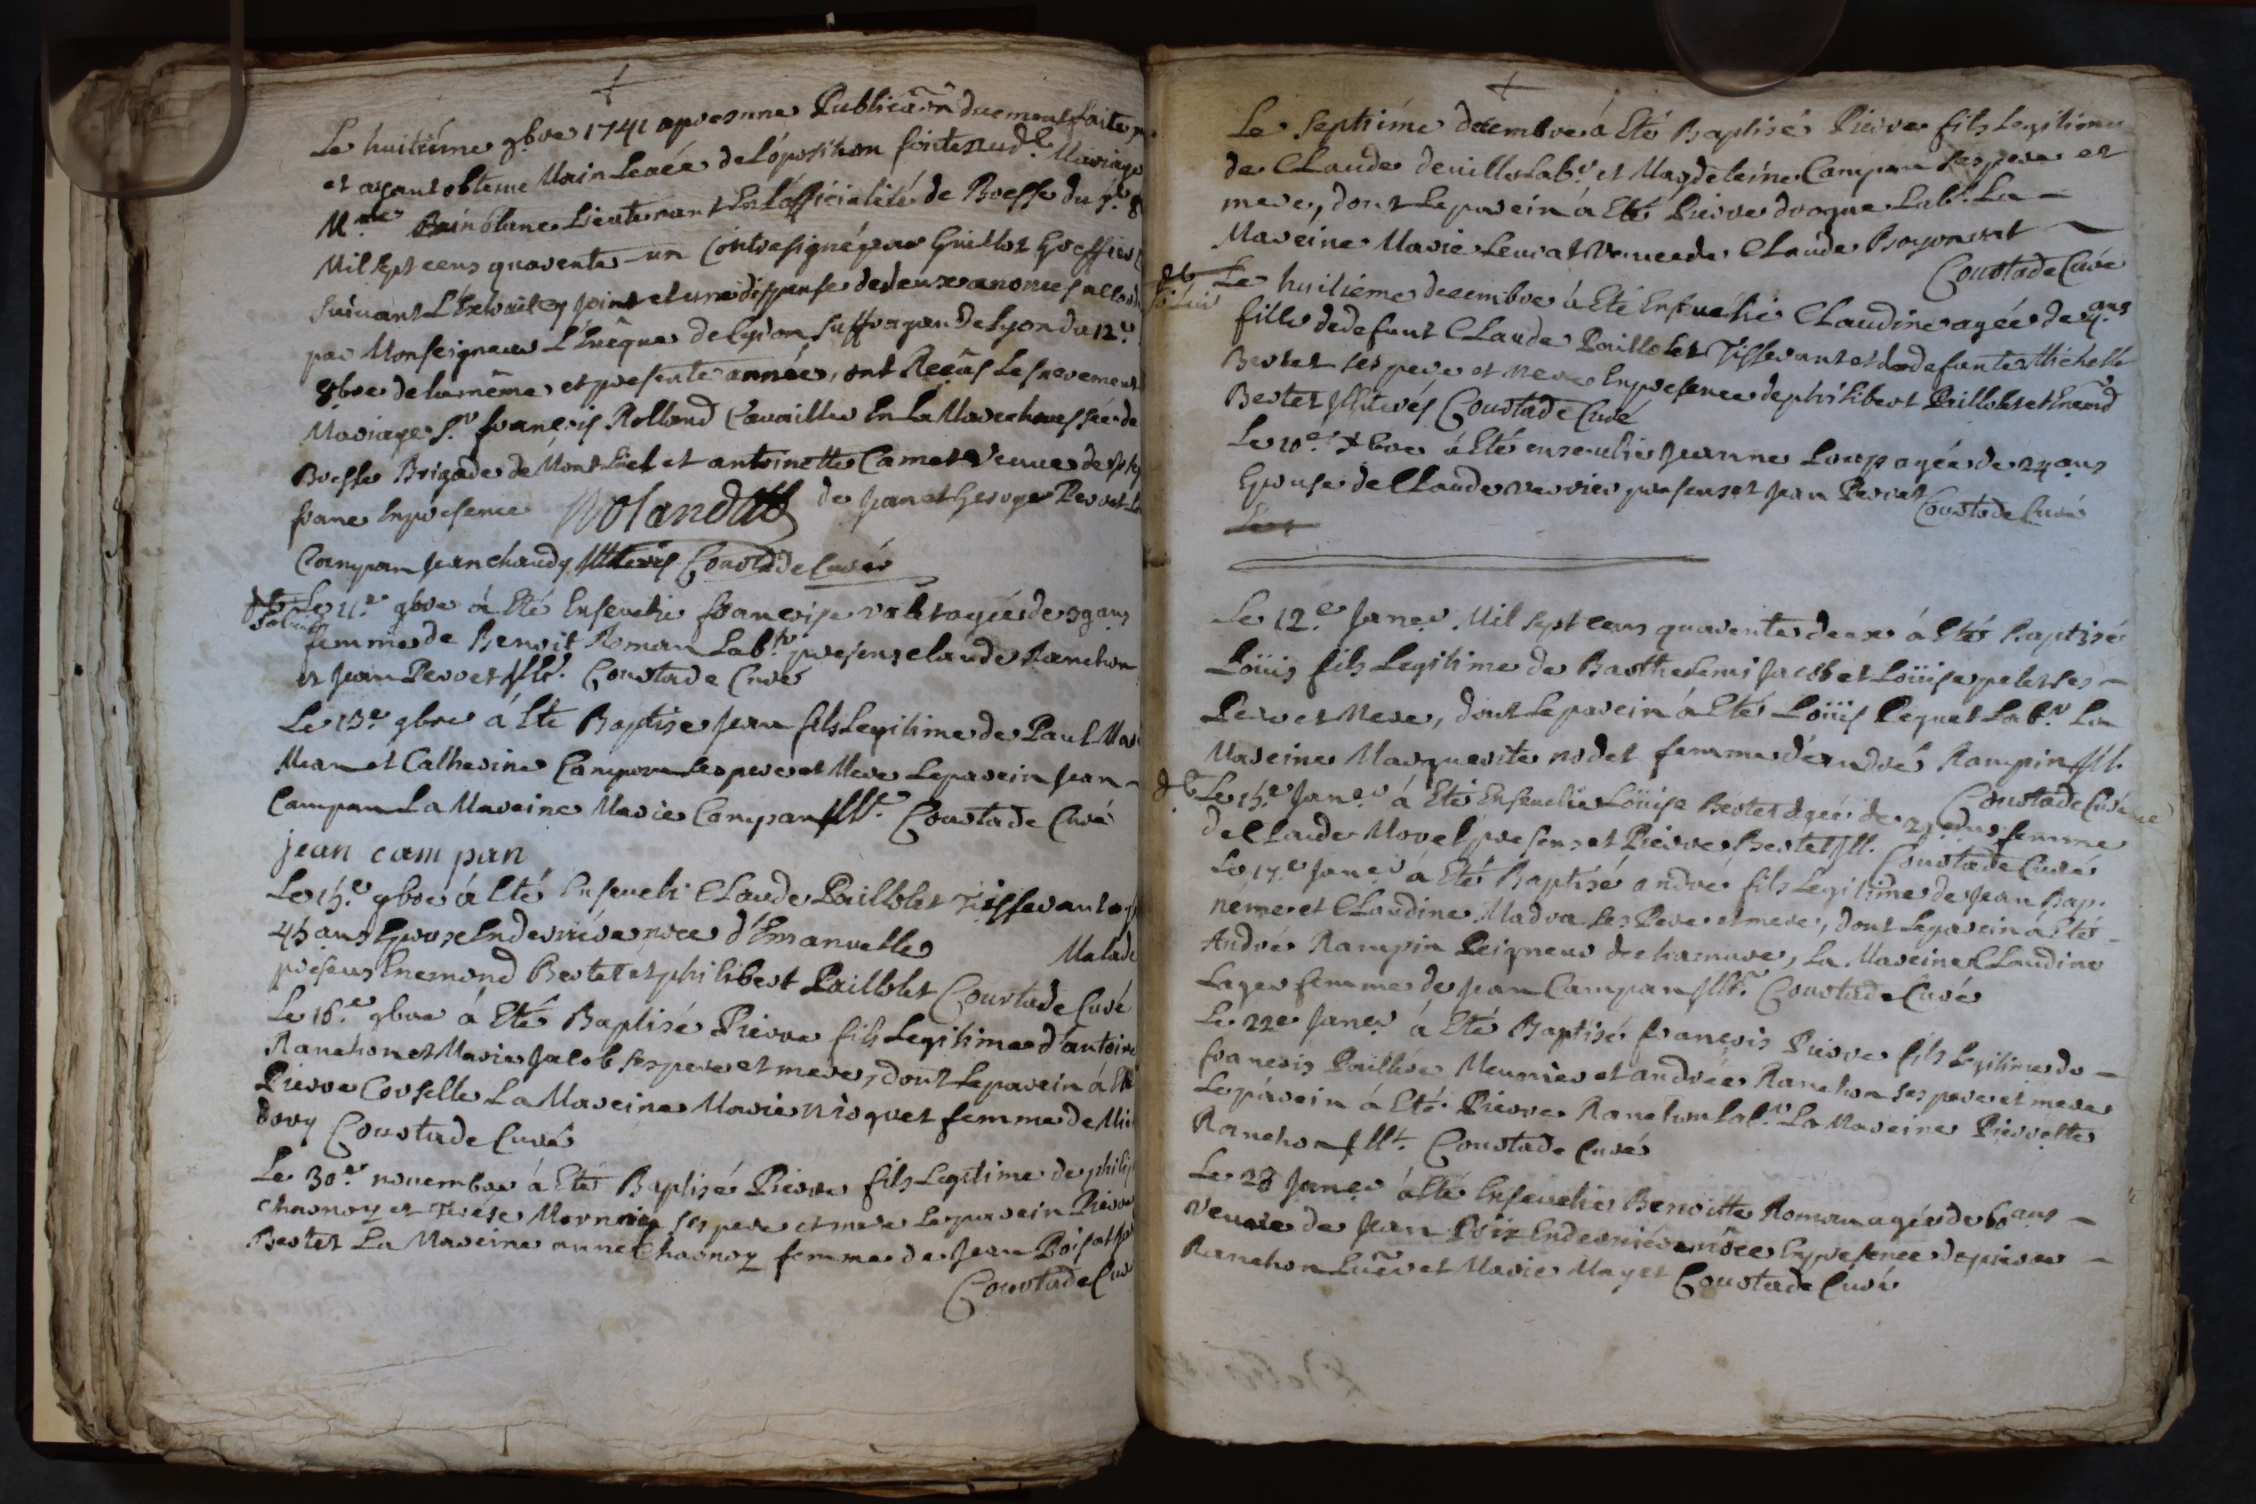 Le huitiéme 9bre 1741 apres une Publica~on duement faite
et ayant obtenu Main Levée de l'oposition faite aud.t Mariage
M.re Lieutenant En l'officialité de Bresse du
Mil sept cens quarente un Contresigné par Guillot Greffier
suivant L'Extrait cy joint et une dispense de deux anonces
par Monseigneur L'Evêque de Sufragan De Lyon du 12.e
8bre de la même et presente année, ont Reçûs Le sacrement
Mariage S.r françois Rolland Cavaillier En La Marechaussée de
Bresse Brigade de Mont Luel et antoinette Camet Veuve de
franc En presence Rolland de Jean et George Perret
Campan Jean chaudy Illiterés Coustade Curé
Le 11.e 9bre á Eté Ensevelie francoise agée de 39 ans
femme de Benoit Roman Lab.r presens claude Ranchon
et Jean Perret Illt. Coustade Curé
Le 13.e 9bre á Eté Baptisé Jean fils Legitime de Paul
Mean et Catherine Campan ses pere et Mere Le parein Jean
Campan La Mareine Marie Campan Illt. Coustade Curé
jean campan
Le 15.e 9bre á Eté Enseveli Claude Paillolet Tisserant
45 ans Epoux En derniére noce d'Emanuelle Malade
presens Enemond Bertet et philibert Paillolet Coustade Curé
Le 16.e 9bre á Eté Baptisé Pierre fils Legitime d'antoine
Ranchon et Marie Jacob ses pere et mere, dont Le parein á Eté
Pierre Corselle La Mareine Marie nisquet femme de
dory Coustade Curé
Le 30.e novembre á Eté Baptisé Pierre fils Legitime de
Charnoz et Therese ses pere et mere Le parein Pierre
Bertet La Mareine anne Charnoz femme de Jean Poisat
Coustade Curé
Le Septiéme decembre á Eté Baptisé Pierre fils Legitime
de Claude deville Lab.r et Magdeleine Campan ses pere et
mere, dont Le parein á Eté Pierre Lab.r La
Mareine Marie Leurat Veuve de Claude
Coustade Curé
Le huitiéme decembre á Eté Ensevelie Claudine agée de ans
fille de defunt Claude Paillolet Tisserant et de defunte Michelle
Bertet ses pere et mere En presence de philibert Paillolet et Enemd
Bertet Illiterés Coustade Curé
Le 10.e Xbre á Eté ensevelie Jeanne Loup agée de 24 ans
Epouse de Claude presens et Jean Perret
Coustade Curé
Le 12.e Janer. Mil sept cens quarente deux á Eté Baptisé
Loüis fils Legitime de Barthelemi Jacob et Loüise ses
Pere et Mere, dont Le parein á Eté Loüis Pequet Lab.r La
Mareine Marguerite nodet femme d'andré Rampin Illt.
Coustade Curé
Le 15.e Janer. á Eté Ensevelie Loüise Bertet agée de ans femme
de Claude Morel presens et Pierre Bertet Illt. Coustade Curé
Le 17.e Janer. á Eté Baptisé andré fils Legitime de Jean Bap.
neme et Claudine Madra ses Pere et mere, dont Le parein á Eté
André Rampin Peigneur de chanvre, La Mareine Claudine
Lager femme de Jean Campan Illt. Coustade Curé
Le 22e Janer. á Eté Baptisé françois Pierre fils Legitime de
francois Meunier et andrée Ranchon ses pere et mere
Le párein á Eté Pierre Ranchon Lab.r La Mareine Pierrette
Ranchon Illt. Coustade Curé
Le 28 Janer á Eté Ensevelie Benoitte Roman agée de 60 ans
Veuve de Jean En derniére nôce En presence de pierre
Ranchon et Marie Mayet Coustade Curé